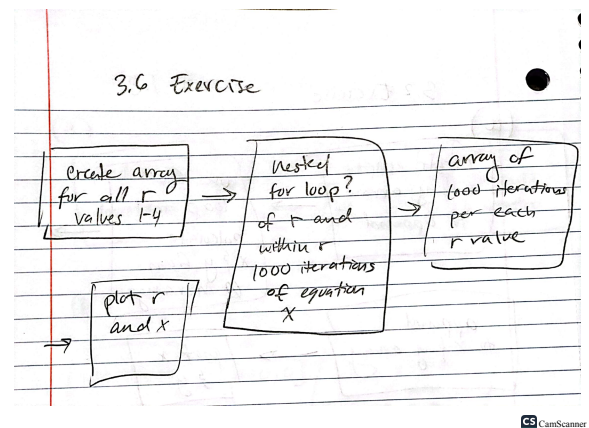 3.6 Exercise
Create array
for all r
values 1-4
nested
for loop?
of r and
within r
1000 iterations
of equation
x
array of
1000 iterations
per each
r value
plot r
and x
CS CamScanner